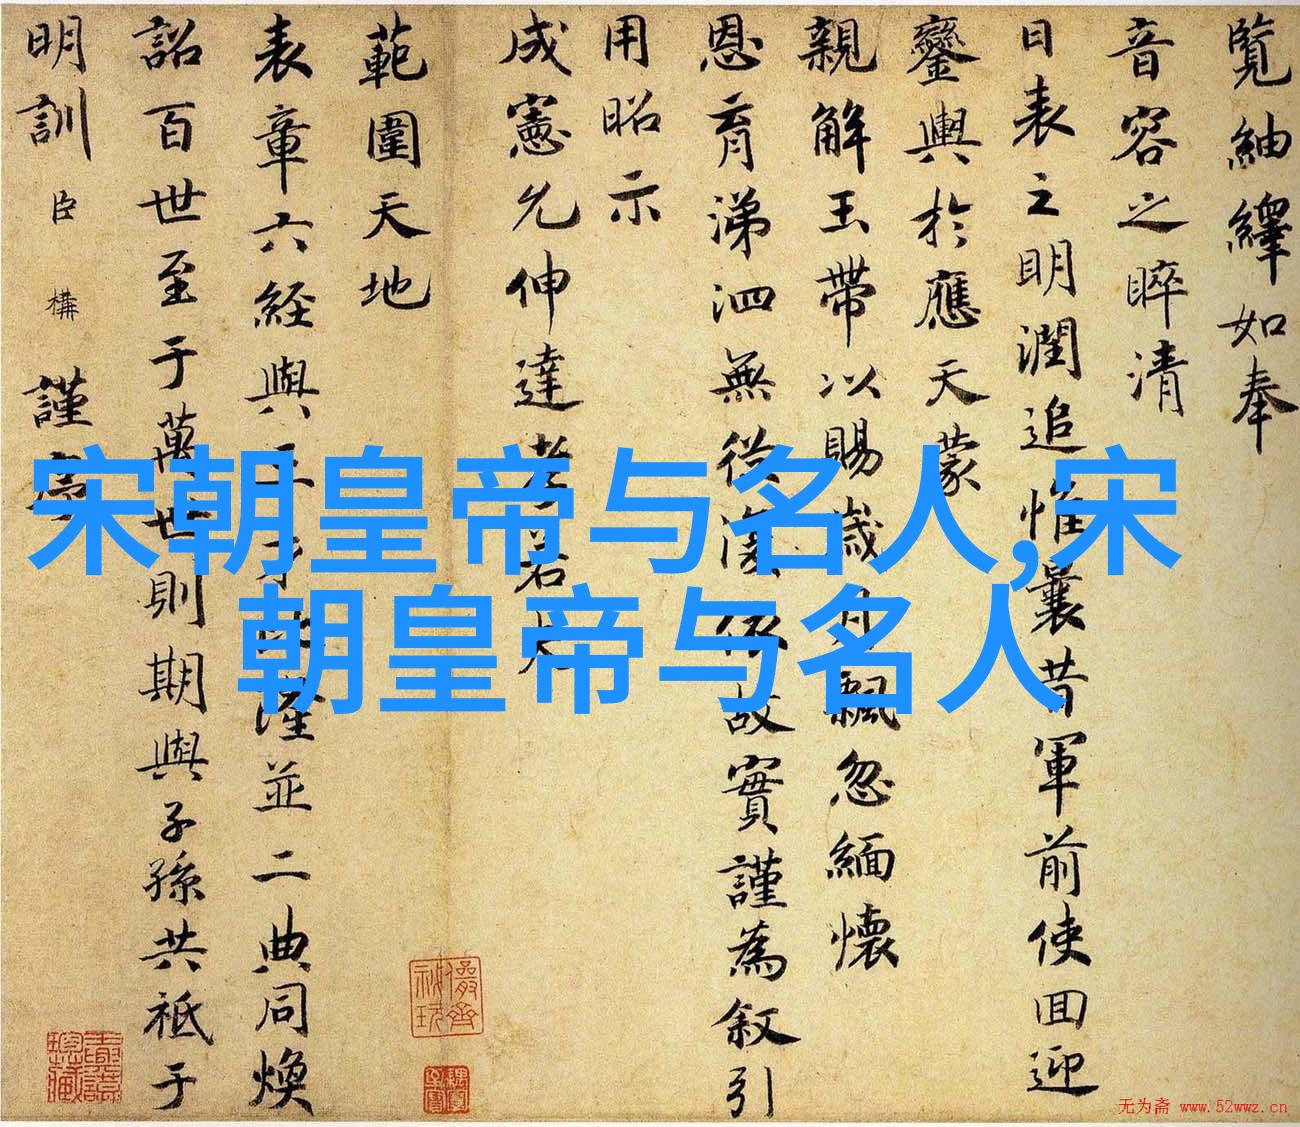 覽紬繹如奉
音容之睟清
日表之明潤追惟曩昔軍前使回迎
鑾輿於應天蒙
親解玉帶以賜歲月飄忽緬懷
恩育涕泗無從復依故實謹為叙引
用昭示
成憲允伸達孝若夫
範圍天地
表章六経與三才以隆並二典同煥
詔百世至于萬世則期與子孫共祗于
明訓臣構謹序
宋朝皇帝与名人,宋
朝皇帝与名人
无为斋 www.52wwz.cn